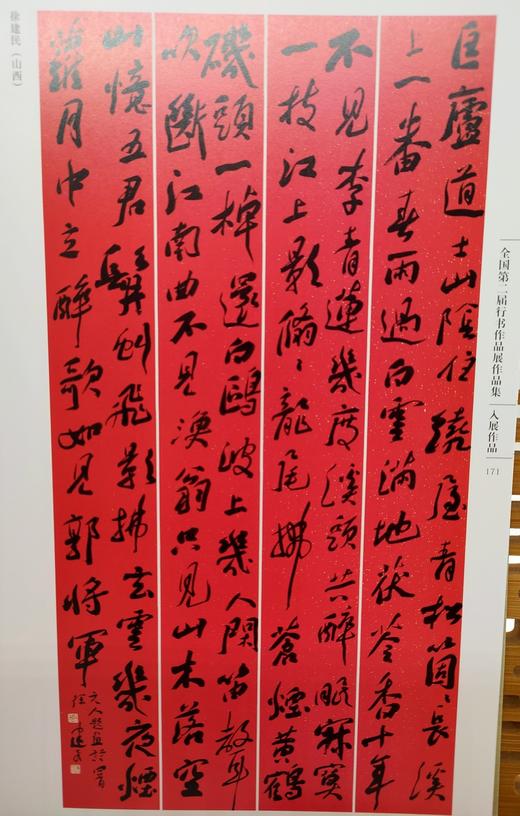 徐建民（山西）
全国第二届行书作品展作品集 入展作品
171
匡廬道士山陰住繞屋青松箇〻長溪
上一番春雨過白雲滿地茯苓香十年
不見李青蓮幾度溪頭共醉眠寂寞
一枝江上影脩〻龍尾拂蒼煙黃鶴
磯頭一棹還白鷗波上幾人閒笛聲
吹斷江南曲不見漁翁只見山木落空
山憶五君髯虬飛影拂玄雲幾夜煙
蘿月中立醉歌如見郭將軍
元人題畫詩
建民